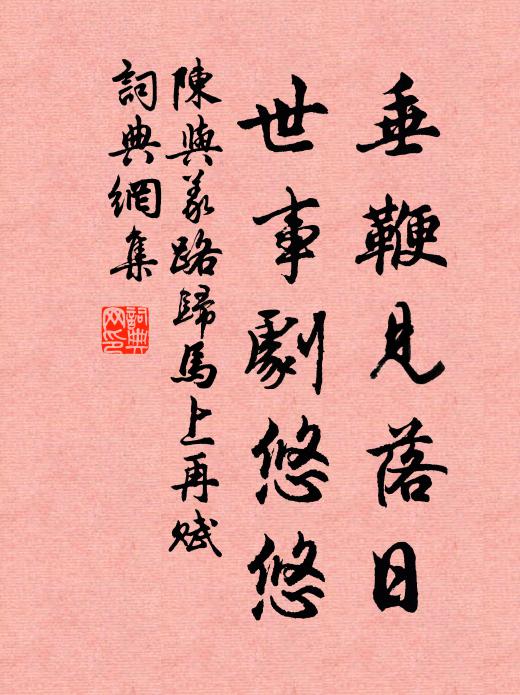 垂鞭見落日
世事劇悠悠
陳與義路歸馬上再賦
詞典網集
詞典
网印